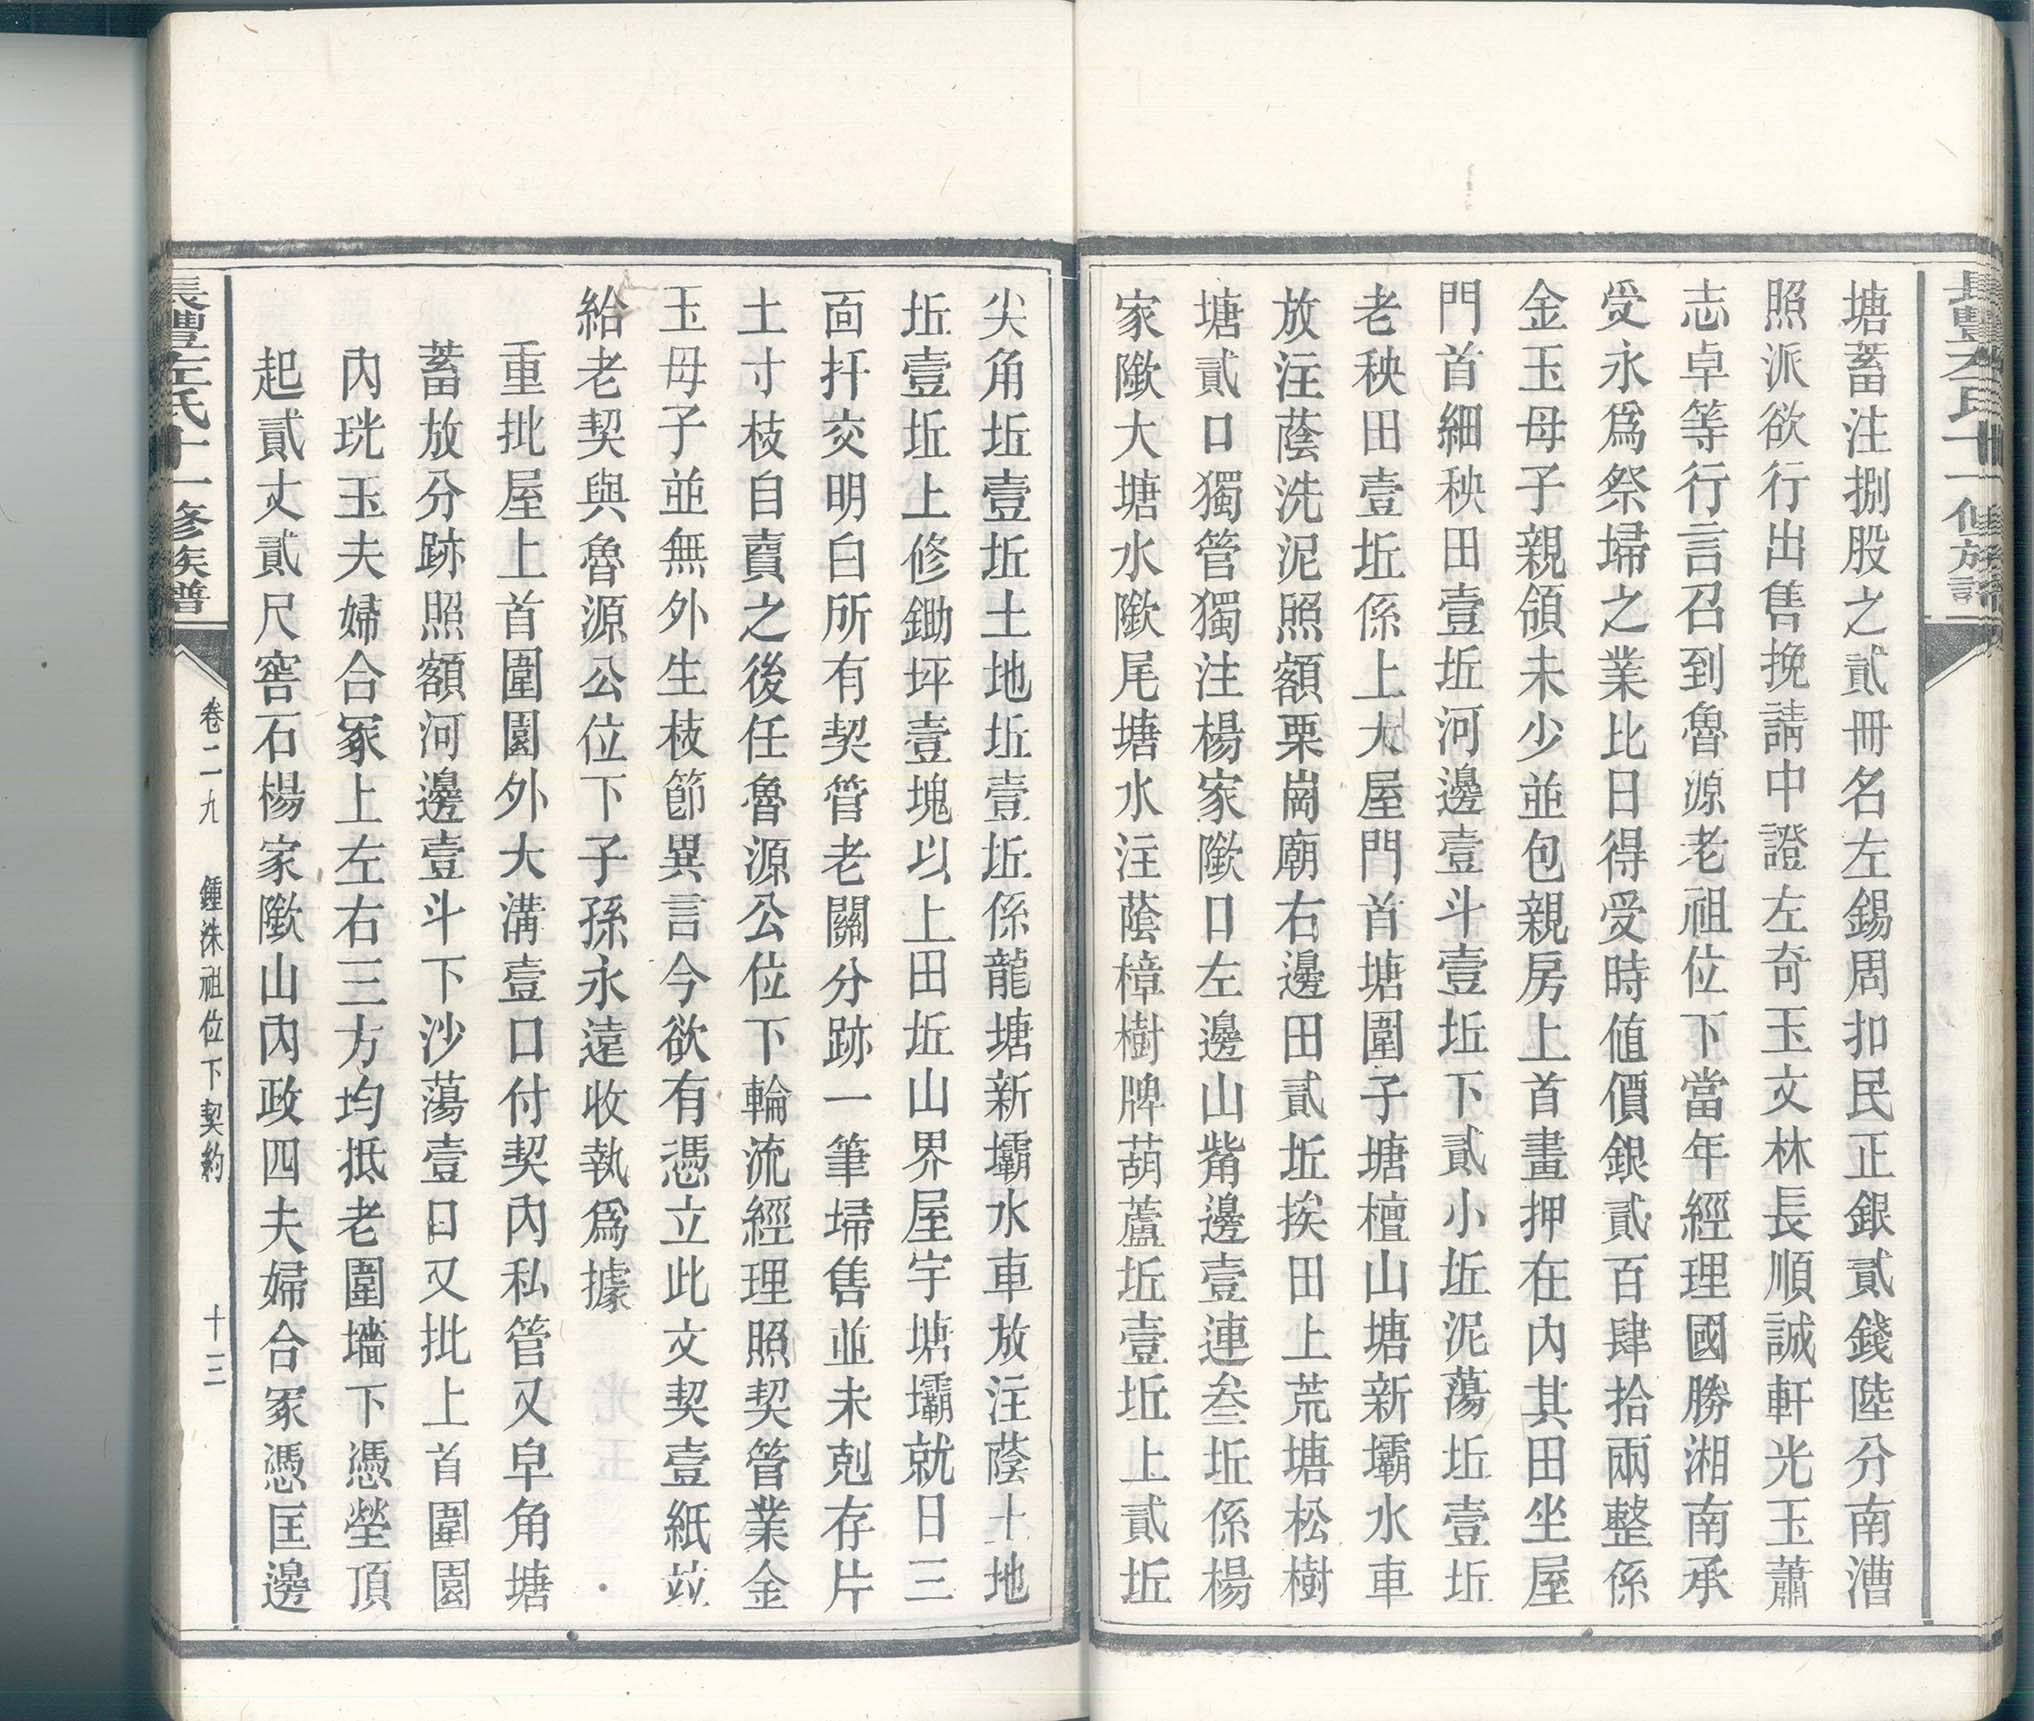 塘蓄注捌股之貳冊名左錫周扣民正銀貳錢陸分南漕
照派欲行出售挽請中證左奇玉文林長順誠軒光玉蕭
志卓等行言召到魯源老祖位下當年經理國勝湘南承
受永爲祭埽之業比日得受時值價銀貳百肆拾兩整係
金玉母子親領未少並包親房上首畫押在內其田坐屋
門首細秧田壹坵河邊壹斗壹坵下貳小坵泥蕩坵壹坵
老秧田壹坵係上大屋門首塘圍子塘檀山塘新壩水車
放注蔭洗泥照額栗崗廟右邊田貳坵挨田上荒塘松樹
塘貳口獨管獨注楊家隞口左邊山觜邊壹連叁坵係楊
家隞大塘水隞尾塘水注蔭樟樹牌葫蘆坵壹坵上貳坵
尖角坵壹坵土地坵壹坵係龍塘新壩水車放注蔭土地
坵壹坵上修鋤坪壹塊以上田坵山界屋宇塘壩就日三
面扦交明白所有契管老關分跡一筆埽售並未剋存片
土寸枝自賣之後任魯源公位下輪流經理照契管業金
玉母子並無外生枝節異言今欲有憑立此文契壹紙竝
給老契與魯源公位下子孫永遠收執爲據
重批屋上首圍園外大溝壹口付契內私管又皁角塘
蓄放分跡照額河邊壹斗下沙蕩壹口又批上首圍園
內珖玉夫婦合冢上左右三方均抵老圍墻下憑塋頂
起貳丈貳尺窖石楊家隞山內政四夫婦合冢憑匡邊
長豐左氏十一修族譜
卷二九 鍾洙祖位下契約 十三